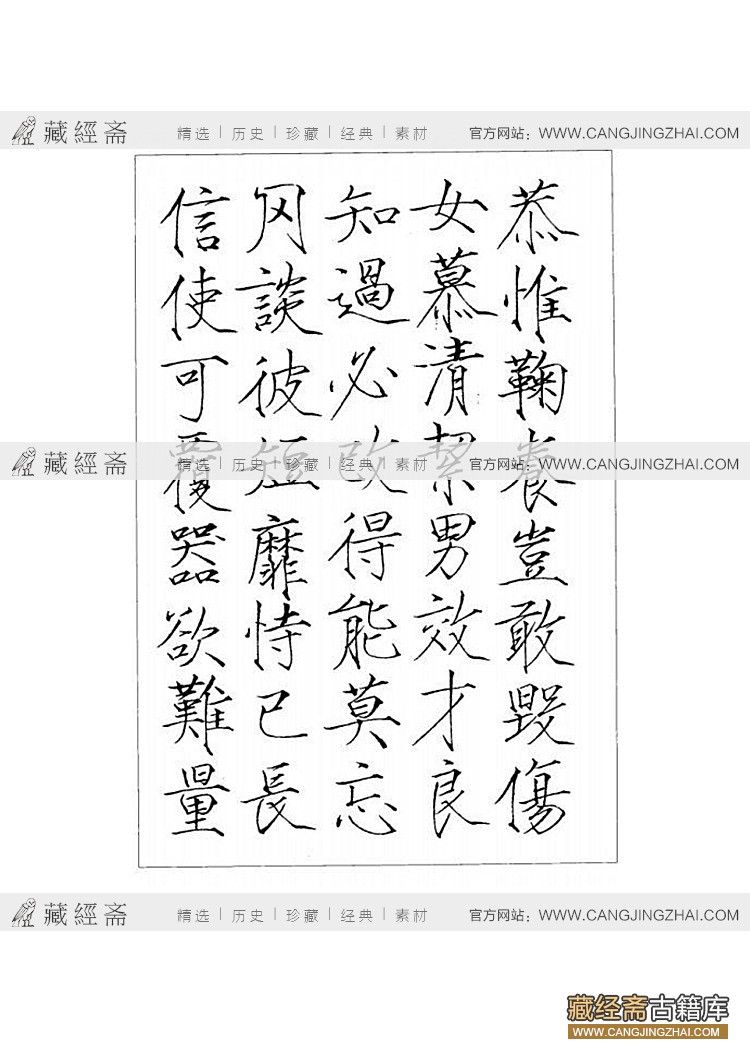 藏經斋 精选 | 历史 | 珍藏 | 经典 | 素材 官方网站：WWW.CANGJINGZHAI.COM
恭惟鞠養豈敢毀傷
女慕清絜男效才良
知過必改得能莫忘
罔談彼短靡恃己長
信使可覆器欲難量
藏經斋 精选 | 历史 | 珍藏 | 经典 | 素材 官方网站：WWW.CANGJINGZHAI.COM
藏經斋 精选 | 历史 | 珍藏 | 经典 | 素材 官方网站：WWW.CANGJINGZHAI.COM
藏经斋古籍库
WWW.CANGJINGZHAI.COM